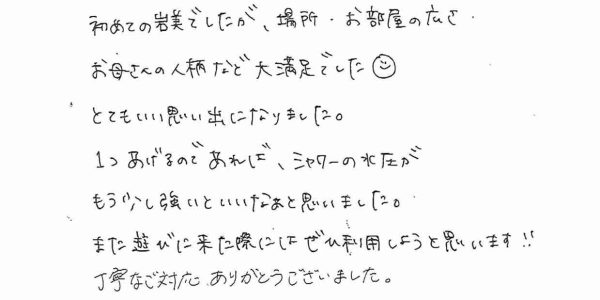 初めての岩美でしたが、場所・お部屋の広さ・
お母さんの人柄など大満足でした☺
とてもいい思い出になりました。
1つあげるのであれば、シャワーの水圧が
もう少し強いといいなぁと思いました。
また遊びに来た際にはぜひ利用しようと思います!!
丁寧なご対応ありがとうございました。